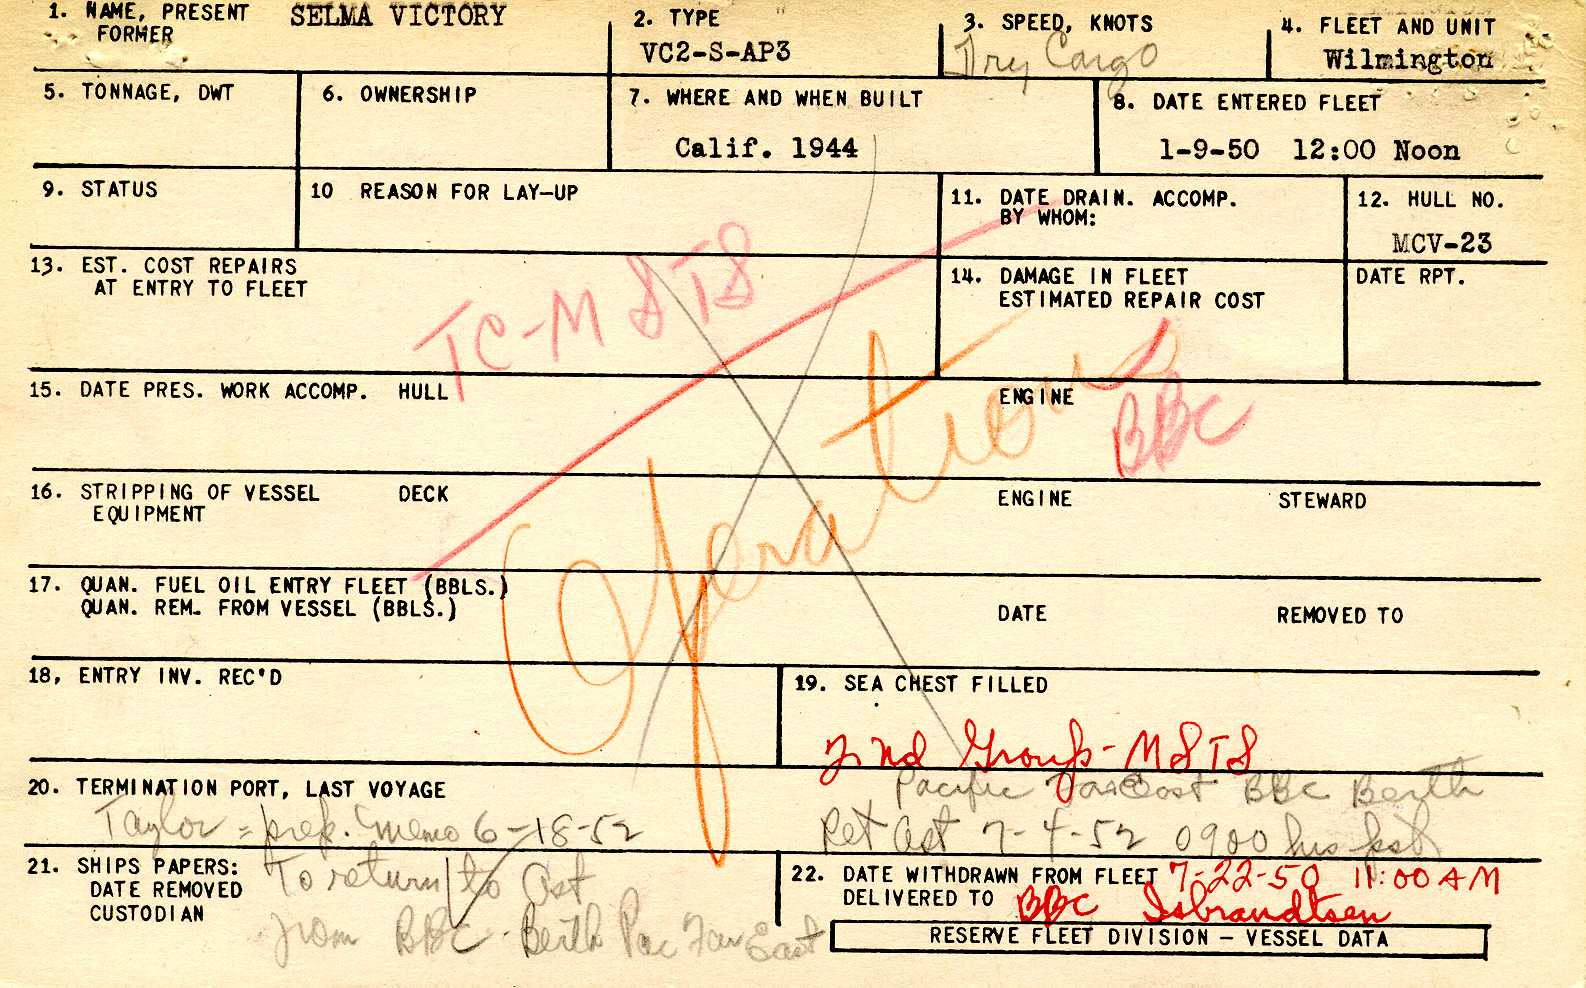 1. NAME, PRESENT SELMA VICTORY
FORMER
2. TYPE
VC2-S-AP3
3. SPEED, KNOTS
Dry Cargo
4. FLEET AND UNIT
Wilmington
5. TONNAGE, DWT
6. OWNERSHIP
7. WHERE AND WHEN BUILT
Calif. 1944
8. DATE ENTERED FLEET
1-9-50 12:00 Noon
9. STATUS
10 REASON FOR LAY-UP
11. DATE DRAIN. ACCOMP.
BY WHOM:
12. HULL NO.
MCV-23
13. EST. COST REPAIRS
AT ENTRY TO FLEET
TC-MSTS
14. DAMAGE IN FLEET
ESTIMATED REPAIR COST
DATE RPT.
15. DATE PRES. WORK ACCOMP. HULL ENGINE
Operations
BBC
16. STRIPPING OF VESSEL DECK ENGINE STEWARD
EQUIPMENT
17. QUAN. FUEL OIL ENTRY FLEET (BBLS.)
QUAN. REM. FROM VESSEL (BBLS.) DATE REMOVED TO
18. ENTRY INV. REC'D
19. SEA CHEST FILLED
2nd Group - MSTS
20. TERMINATION PORT, LAST VOYAGE
Pacific Far East BBC Berth
Taylor = prep. memo 6-18-52
Ret Ast 7-4-52 0900 hrs pst
21. SHIPS PAPERS:
DATE REMOVED
CUSTODIAN
To return to Ast
from BBC - Berth Pac Far East
22. DATE WITHDRAWN FROM FLEET 7-22-50 11:00 AM
DELIVERED TO BBC Isbrandtsen
RESERVE FLEET DIVISION - VESSEL DATA